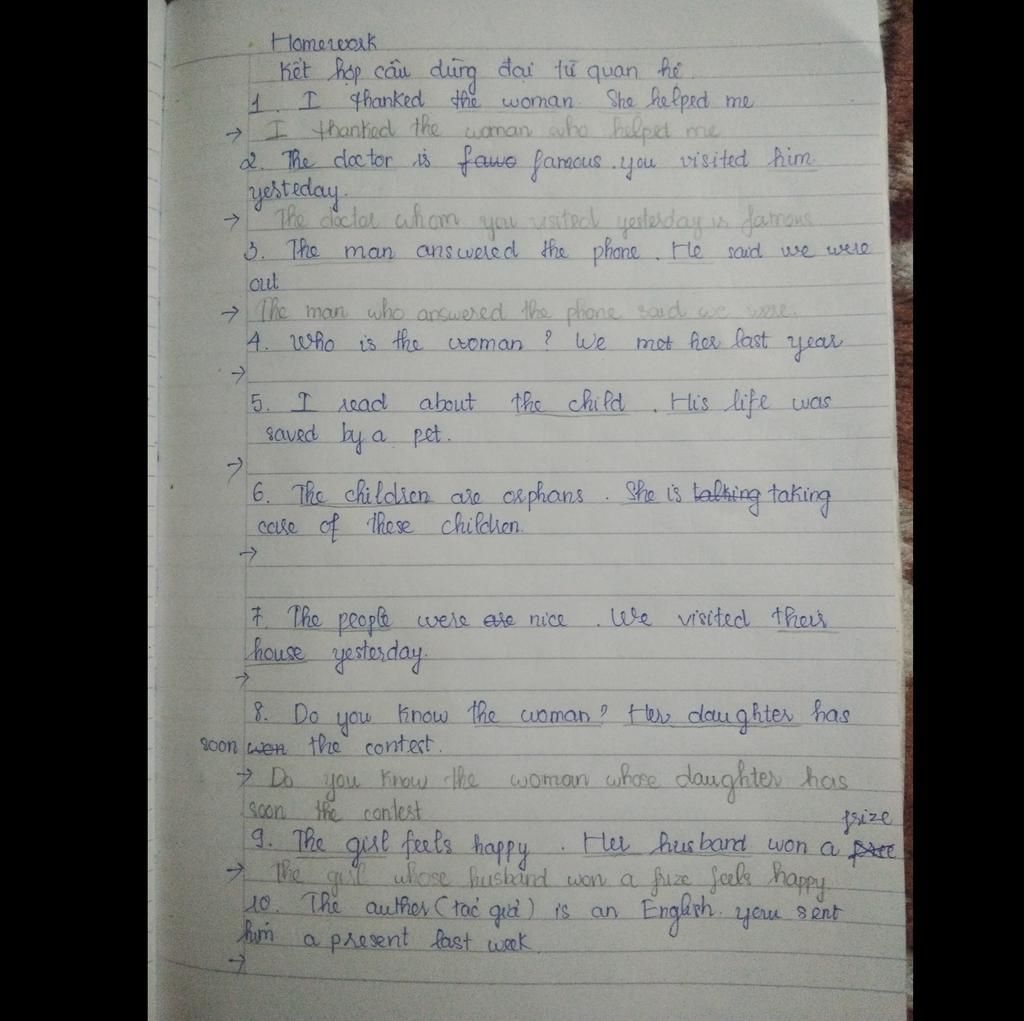 Homework
Kết hợp câu dùng đại từ quan hệ
1. I thanked the woman. She helped me
→ I thanked the woman who helped me
2. The doctor is famous. you visited him
yesteday.
→ The doctor whom you visited yesterday is famous
3. The man answered the phone. He said we were
out
→ The man who answered the phone said we were.
4. Who is the woman? We met her last year
→
5. I read about the child. His life was
saved by a pet.
→
6. The children are orphans. She is talking taking
care of these children.
→
7. The people were are nice. We visited their
house yesterday.
→
8. Do you know the woman? Her daughter has
soon won the contest.
→ Do you know the woman whose daughter has
soon the contest
prize
9. The girl feels happy. Her husband won a
→ The girl whose husband won a prize feels happy.
10. The author (tác giả) is an English. you sent
him a present last week
→